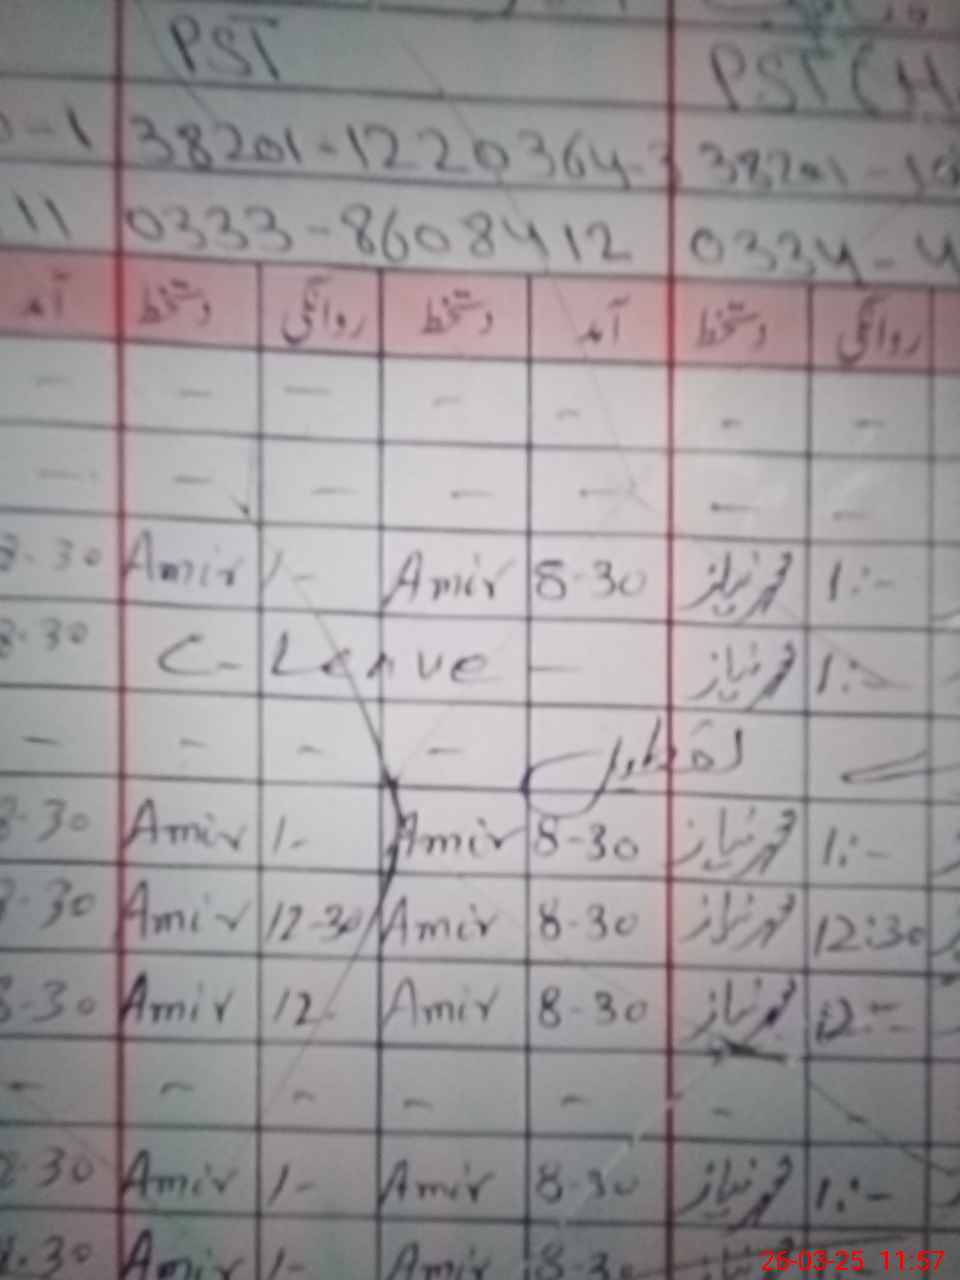 PST PST (H
-1 38201-1220364-3 38201-19
11 0333-8608412 0334-4
آمد دستخط روانگی دستخط آمد دستخط روانگی
- - - - - - -
- - - - - - -
8-30 Amir 1- Amir 8-30 محمد نیاز 1:-
8-30 C-Leave - محمد نیاز 1:-
- - - - تعطیل
8-30 Amir 1- Amir 8-30 محمد نیاز 1:-
8-30 Amir 12-30 Amir 8-30 محمد نیاز 12:30
8-30 Amir 12. Amir 8-30 محمد نیاز 12:-
- - - - - - -
8-30 Amir 1- Amir 8-30 محمد نیاز 1:-
8-30 Amir 1- Amir 8-30
26-03-25 11:57